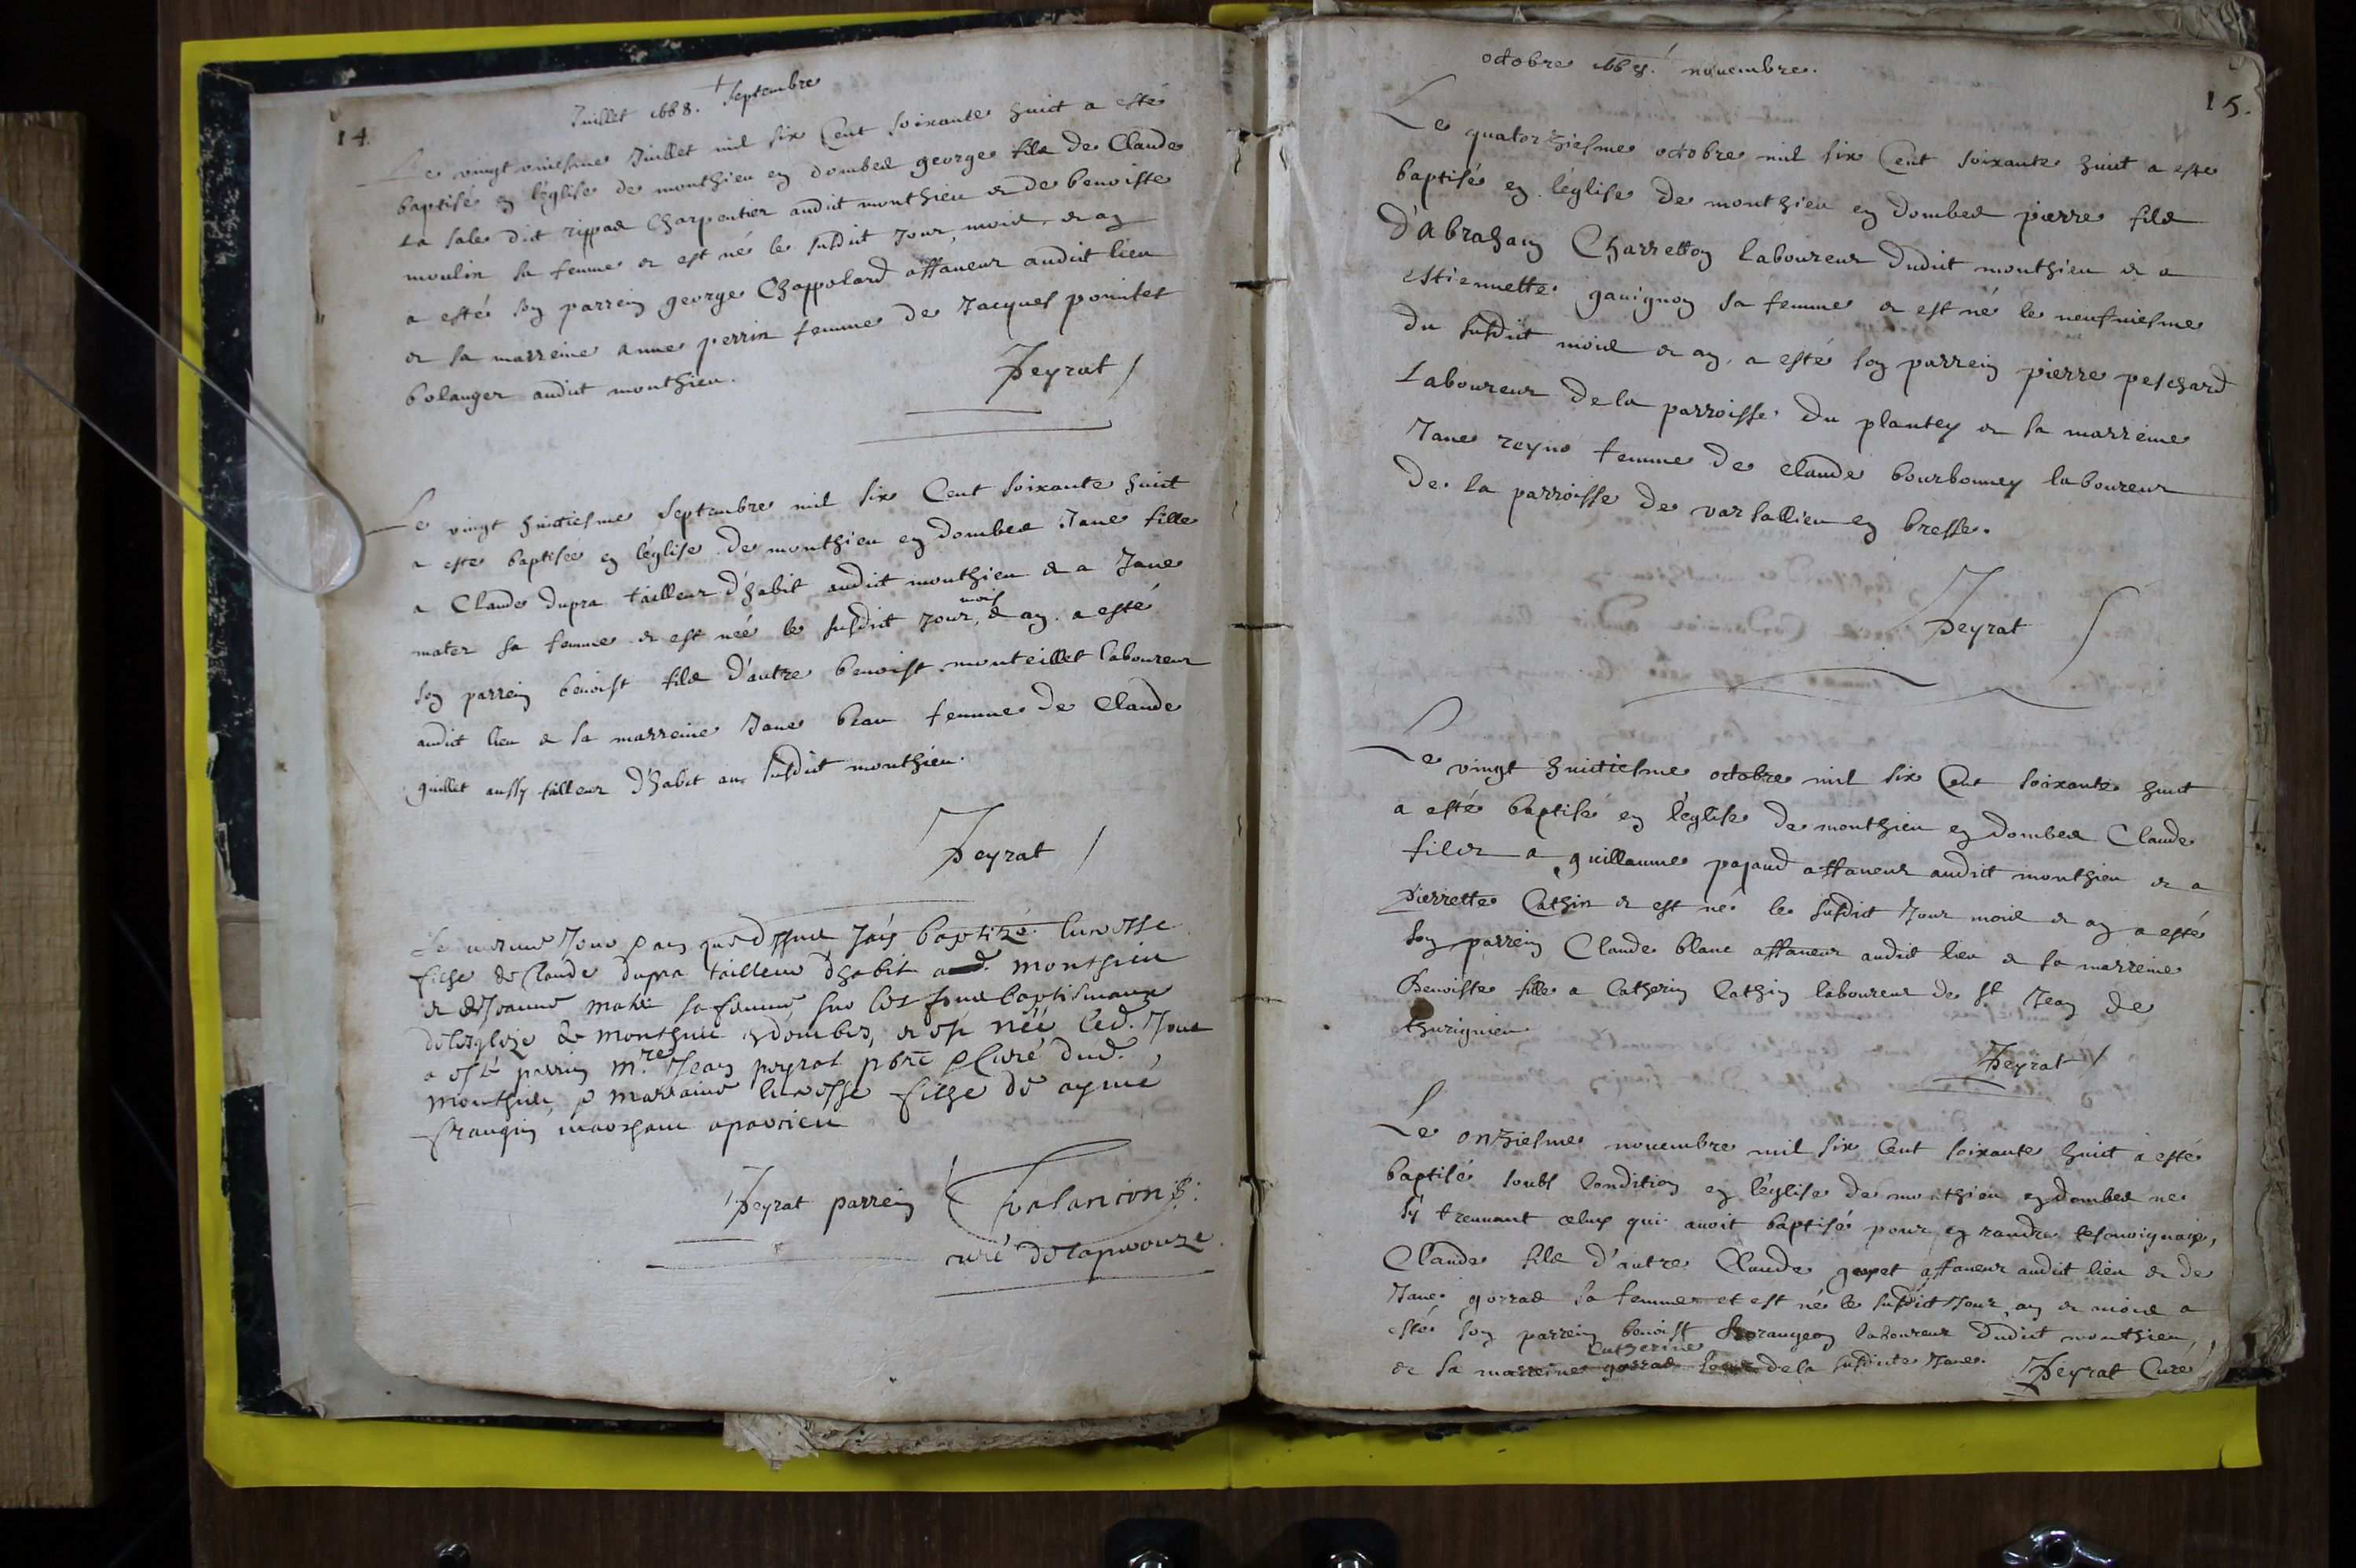 14.
Juillet 1668. + Septembre
Le vingt uniesme Juillet mil six Cent soixante huict a esté
baptisé en l'église de monthieu en dombes george fils de Claude
La sale dit rippas Charpentier audict monthieu et de benoiste
moulin sa femme et est né le susdit jour, mois, et an
a esté son parrein george Chappolard affaneur audict lieu
et sa marreine anne perrin femme de Jacques pointet
bolanger audict monthieu.
Peyrat /
Le vingt huictiesme Septembre mil six Cent soixante huict
a esté baptisée en l'église de monthieu en dombes Jane fille
a Claude dupra tailleur d'habit audict monthieu et a Jane
mater sa femme et est née le susdit jour, mois & an. a esté
son parrein benoist fils d'autre benoist monteillet laboureur
audict lieu et sa marreine Jane beau femme de Claude
guillet aussy tailleur d'habit au susdict monthieu.
Peyrat /
Le mesme Jour & an que dessus Jay baptizé
fille de Claude dupra tailleur dhabit aud. monthieu
et de Joanne mater sa femme, sur les fons baptismaux
de leglize de monthieu en dombes, et est née led. Jour
a esté parrin m.re Jean peyrat pbre & Curé dud.
monthieu, & marraine fille de aymé
marchant
Peyrat parrein
curé de
octobre 1668. novembre.
15.
Le quatorziesme octobre mil six Cent soixante huict a esté
baptisé en l'église de monthieu en dombes pierre fils
d'Abraham Charretton laboureur dudict monthieu et a
estiennette gavignon sa femme et est né le neufviesme
du susdict mois et an. a esté son parrein pierre peschard
Laboureur de la parroisse du plantey et sa marreine
Jane reyno femme de claude bourbonney laboureur
de la parroisse de varsallieu en bresse.
Peyrat
Le vingt huictiesme octobre mil six Cent soixante huict
a esté baptisé en l'église de monthieu en dombes Claude
fils a guillaume pajaud affaneur audict monthieu et a
pierrette Cathin et est né le susdict Jour mois et an a esté
son parrein Claude blanc affaneur audict lieu et sa marreine
Benoiste fille a Catherin Cathin laboureur de st Jean de
thurignieu
Peyrat /
Le onziesme novembre mil six Cent soixante huict a esté
baptisé soubs Condition en l'église de monthieu en dombes ne
sy treuvant celuy qui avoit baptisé pour en randre
Claude fils d'autre Claude affaneur audict lieu et de
Jane gorras sa femme et est né le susdict Jour an et mois a
esté son parrein benoist laboureur dudict monthieu,
et sa marreine Catherine gorras de la susdicte Jane. Peyrat Curé